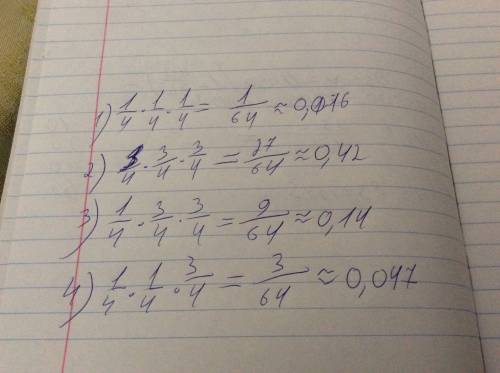 1) 1/4 · 1/4 · 1/4 = 1/64 ≈ 0,016
2) 3/4 · 3/4 · 3/4 = 27/64 ≈ 0,42
3) 1/4 · 3/4 · 3/4 = 9/64 ≈ 0,14
4) 1/4 · 1/4 · 3/4 = 3/64 ≈ 0,047